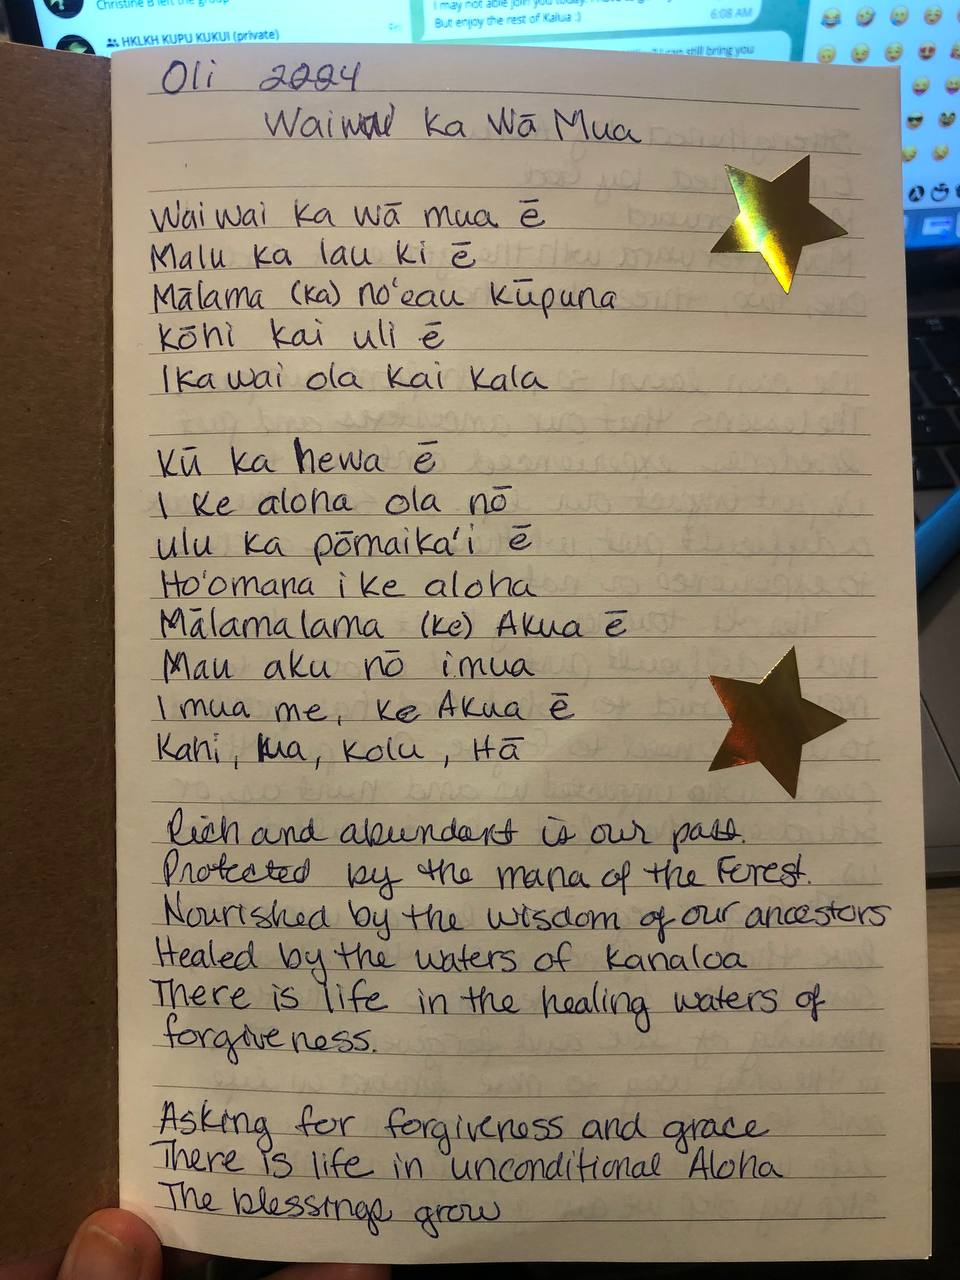 Christine B left the group
HKLKH KUPU KUKUI (private)
But enjoy the rest of Kailua :)
6:08 AM
still bring you
Oli 2024
Waiwai ka Wā Mua
Waiwai ka wā mua ē
Malu ka lau ki ē
Mālama (ka) no'eau kūpuna
Kōhi kai uli ē
I ka wai ola kai kala
Kū ka hewa ē
I ke aloha ola nō
ulu ka pōmaika'i ē
Ho'omana i ke aloha
Mālamalama (ke) Akua ē
Mau aku nō imua
I mua me, ke Akua ē
Kahi, lua, kolu, Hā
Rich and abundant is our past.
Protected by the mana of the Forest.
Nourished by the wisdom of our ancestors
Healed by the waters of Kanaloa
There is life in the healing waters of
forgiveness.
Asking for forgiveness and grace
There is life in unconditional Aloha
The blessings grow